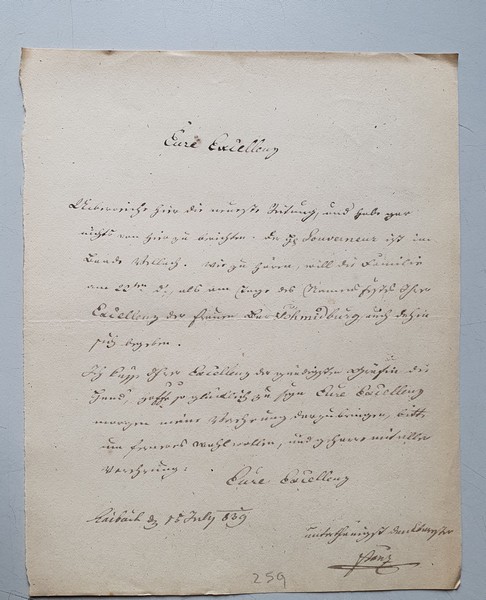 Eure Excellenz
Ueberreiche hier die neueste Zeitung, und habe gar
nichts von hier zu berichten. Der H Gouverneur ist im
Bade Vellach. Wie zu hören, will die Familie
am 22ten d, als am Tage des Namensfestes Ihrer
Excellenz der Frauen Bar Schmidburg, sich dahin
begeben.
Ich küsse Ihrer Excellenz der gnädigsten Gräfin die
Hand, hoffe so glücklich zu seyn Eure Excellenz
morgen meine Verehrung darzubringen, bitte
um ferneres Wohlwollen, und geharre mit aller
Verehrung:
Eure Excellenz
Laibach d 15 July 839
unterthänigst dankbarster
259